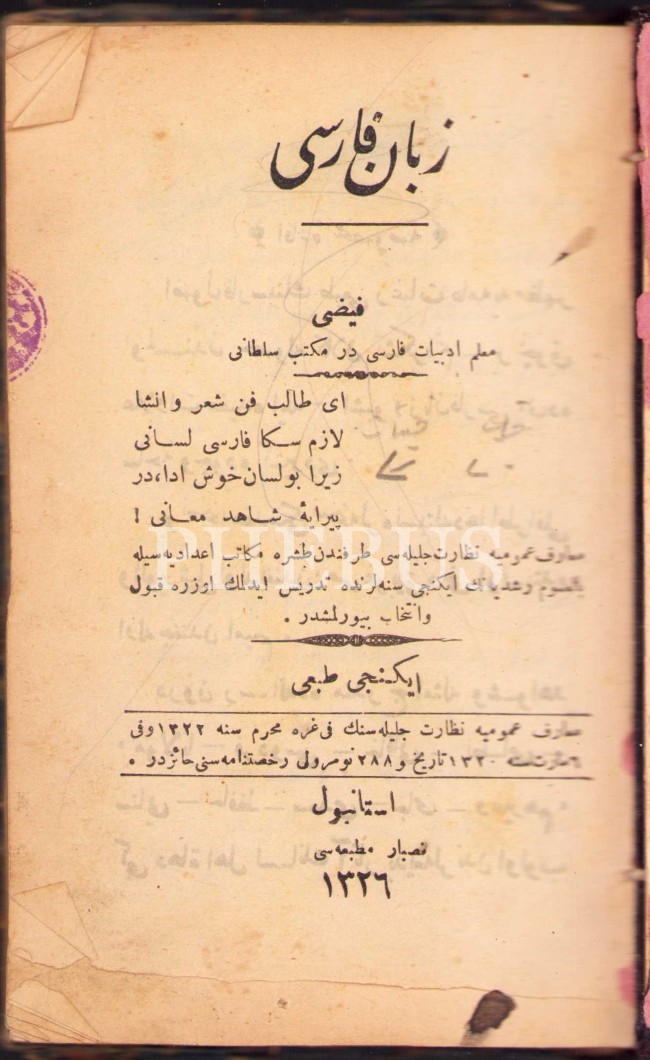 زبان فارسی
فیضی
معلم ادبیات فارسی در مکتب سلطانی
ای طالب فن شعر وانشا
لازم سکا فارسی لسانی
زیرا بولسان خوش ادا،در
پیرایهٔ شاهد معانی !
معارف عمومیه نظارت جلیله‌سی طرفندن طشره مکاتب اعدادیه‌سیله
بالعموم رشدیه‌لرك ایکنجی سنه‌لرنده تدریس ایدلك اوزره قبول
وانتخاب بیورلمشدر .
ایکنجی طبعی
معارف عمومیه نظارت جلیله‌سنك فی غره محرم سنه ١٣٢٢ وفی
سنه ١٣٢٠ تاریخ و ٢٨٨ نومرولی رخصتنامه‌سنی حائزدر .
استانبول
قصبار مطبعه‌سی
١٣٢٦
PHEBUS